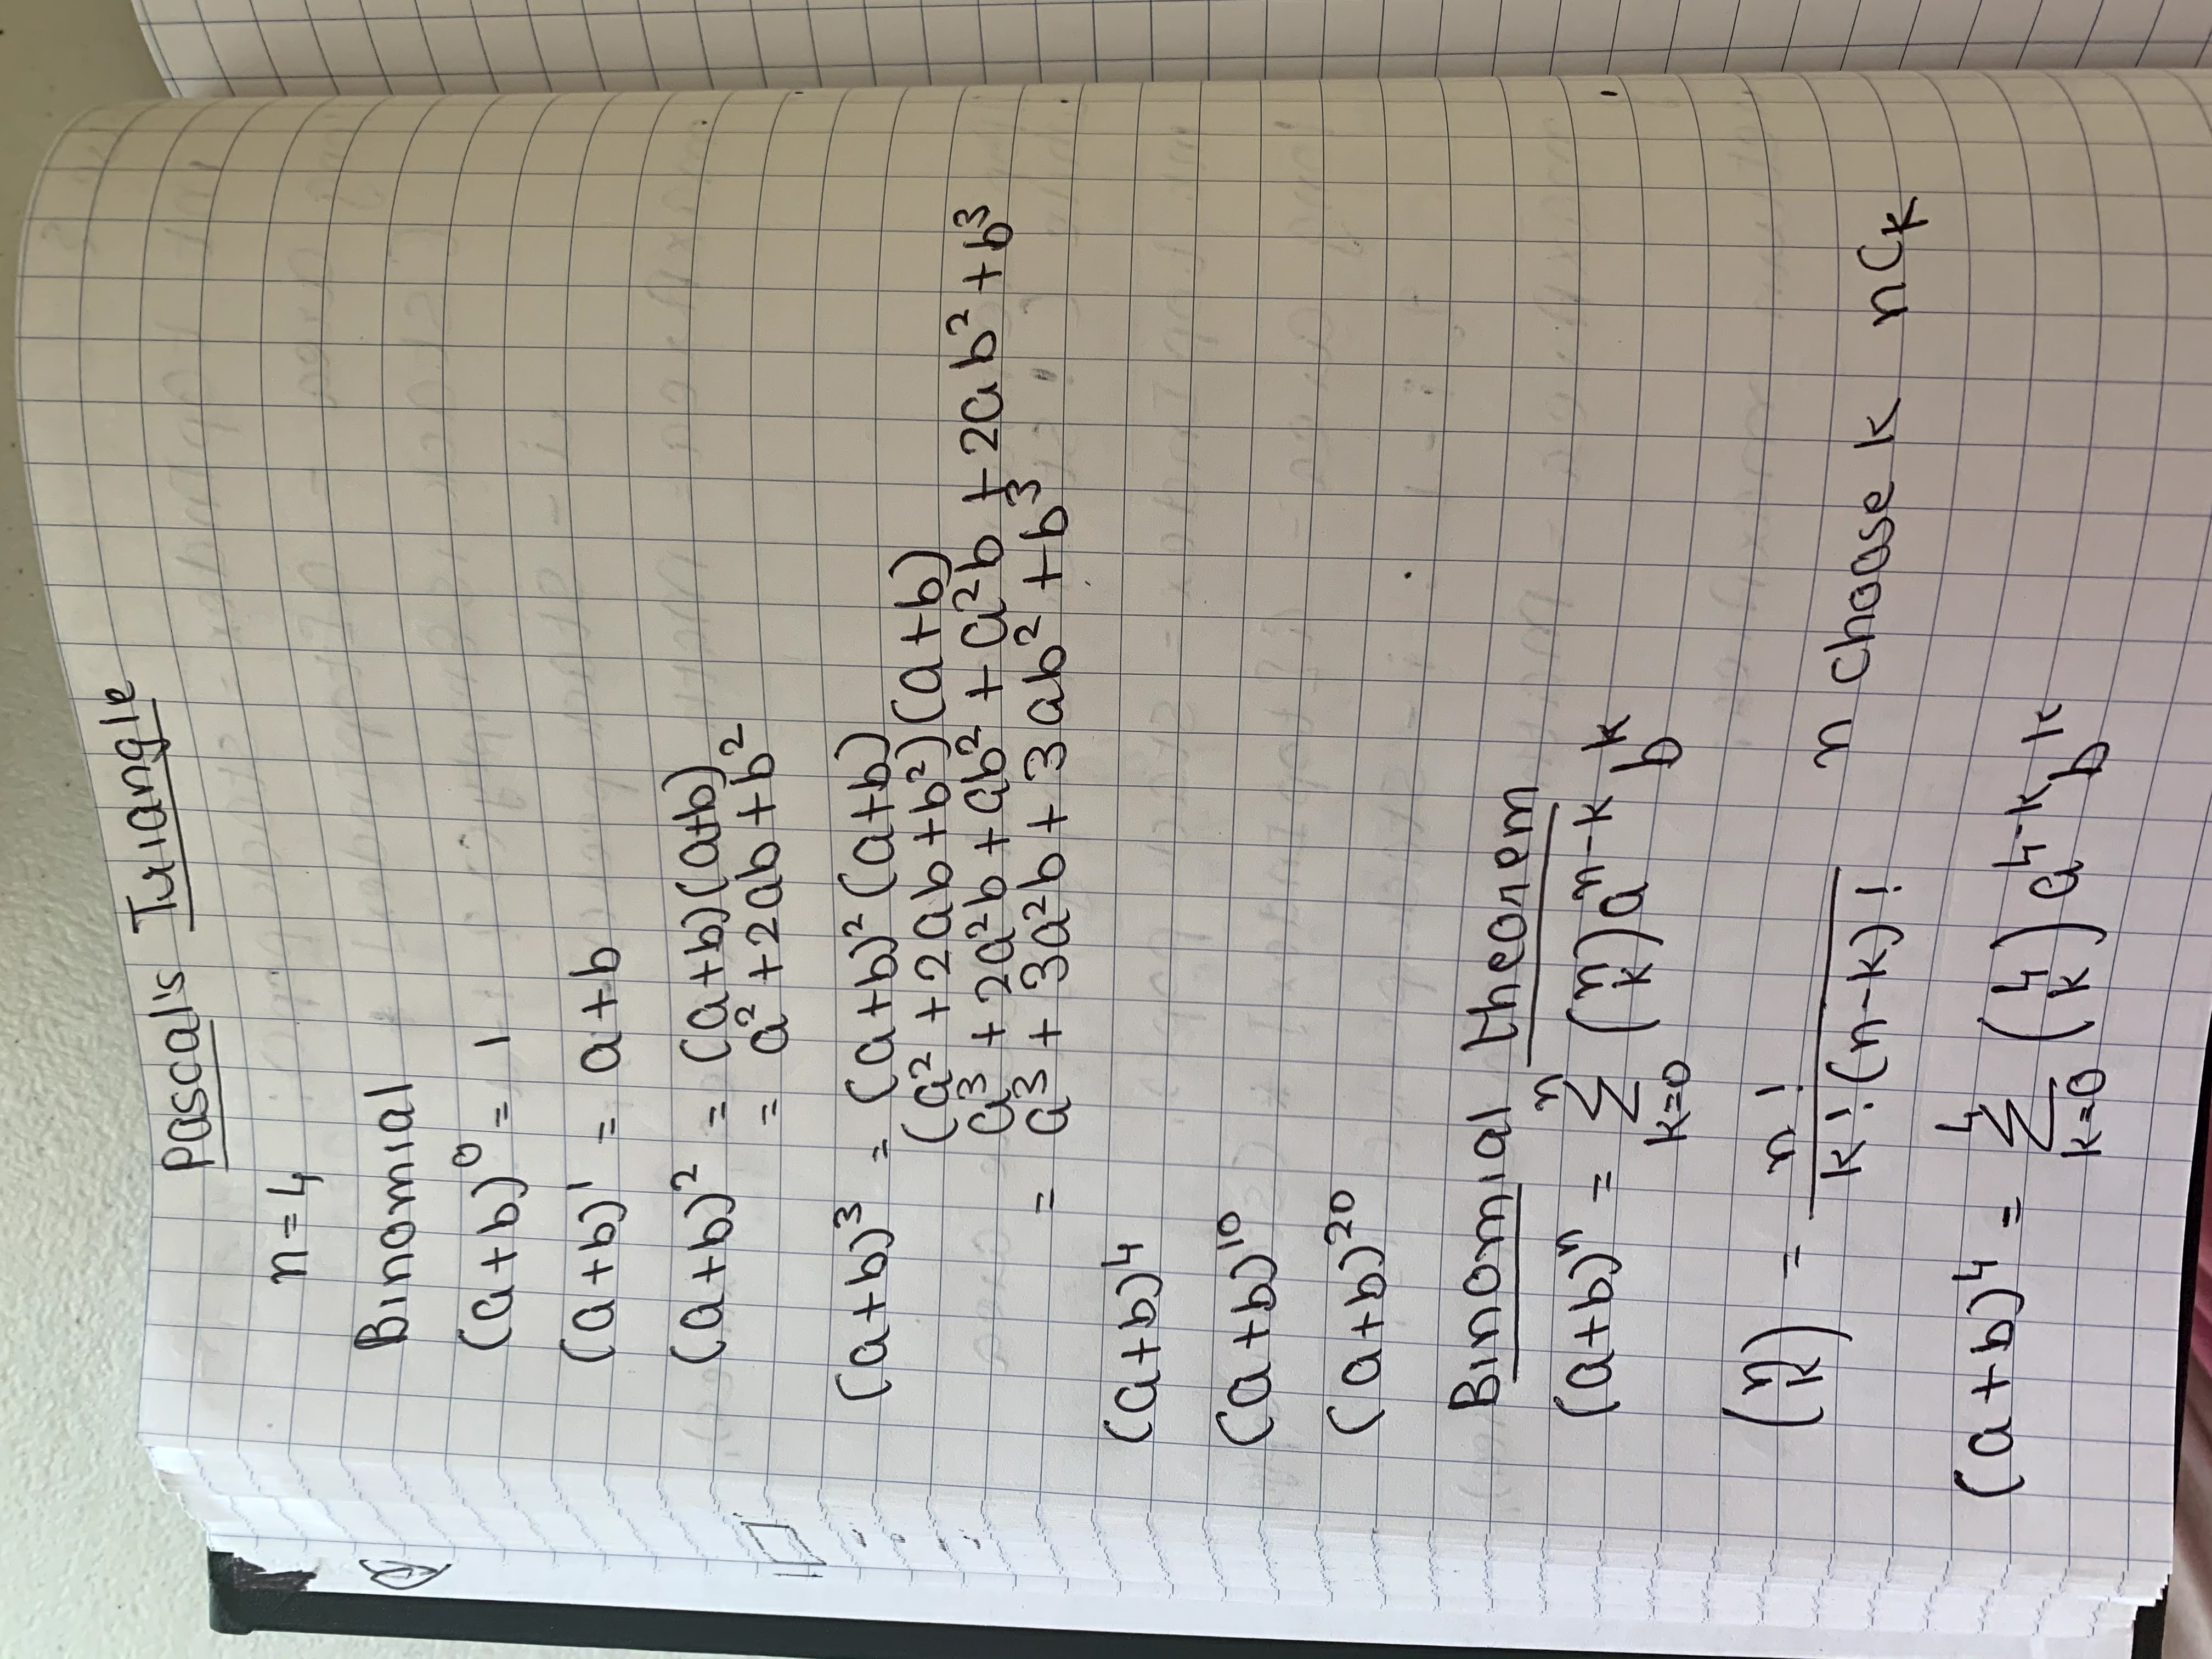 Pascal's Triangle
n = 4
Binomial
(a+b)⁰ = 1
(a+b)¹ = a+b
(a+b)² = (a+b)(a+b)
= a² + 2ab + b²
(a+b)³ = (a+b)² (a+b)
(a² + 2ab + b²)(a+b)
a³ + 2a²b + ab² + a²b + 2ab² + b³
= a³ + 3a²b + 3ab² + b³
(a+b)⁴
(a+b)¹⁰
(a+b)²⁰
Binomial theorem
(a+b)ⁿ = \sum_{k=0}^{n} \binom{n}{k} a^{n-k} b^{k}
\binom{n}{k} = \frac{n!}{k!(n-k)!} n choose k nCₖ
(a+b)⁴ = \sum_{k=0}^{4} \binom{4}{k} a^{4-k} b^{k}